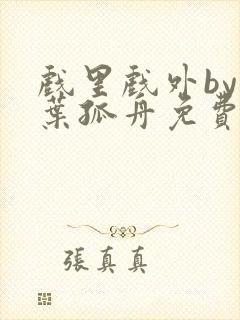 戲里戲外by
葉孤舟免費
張真真